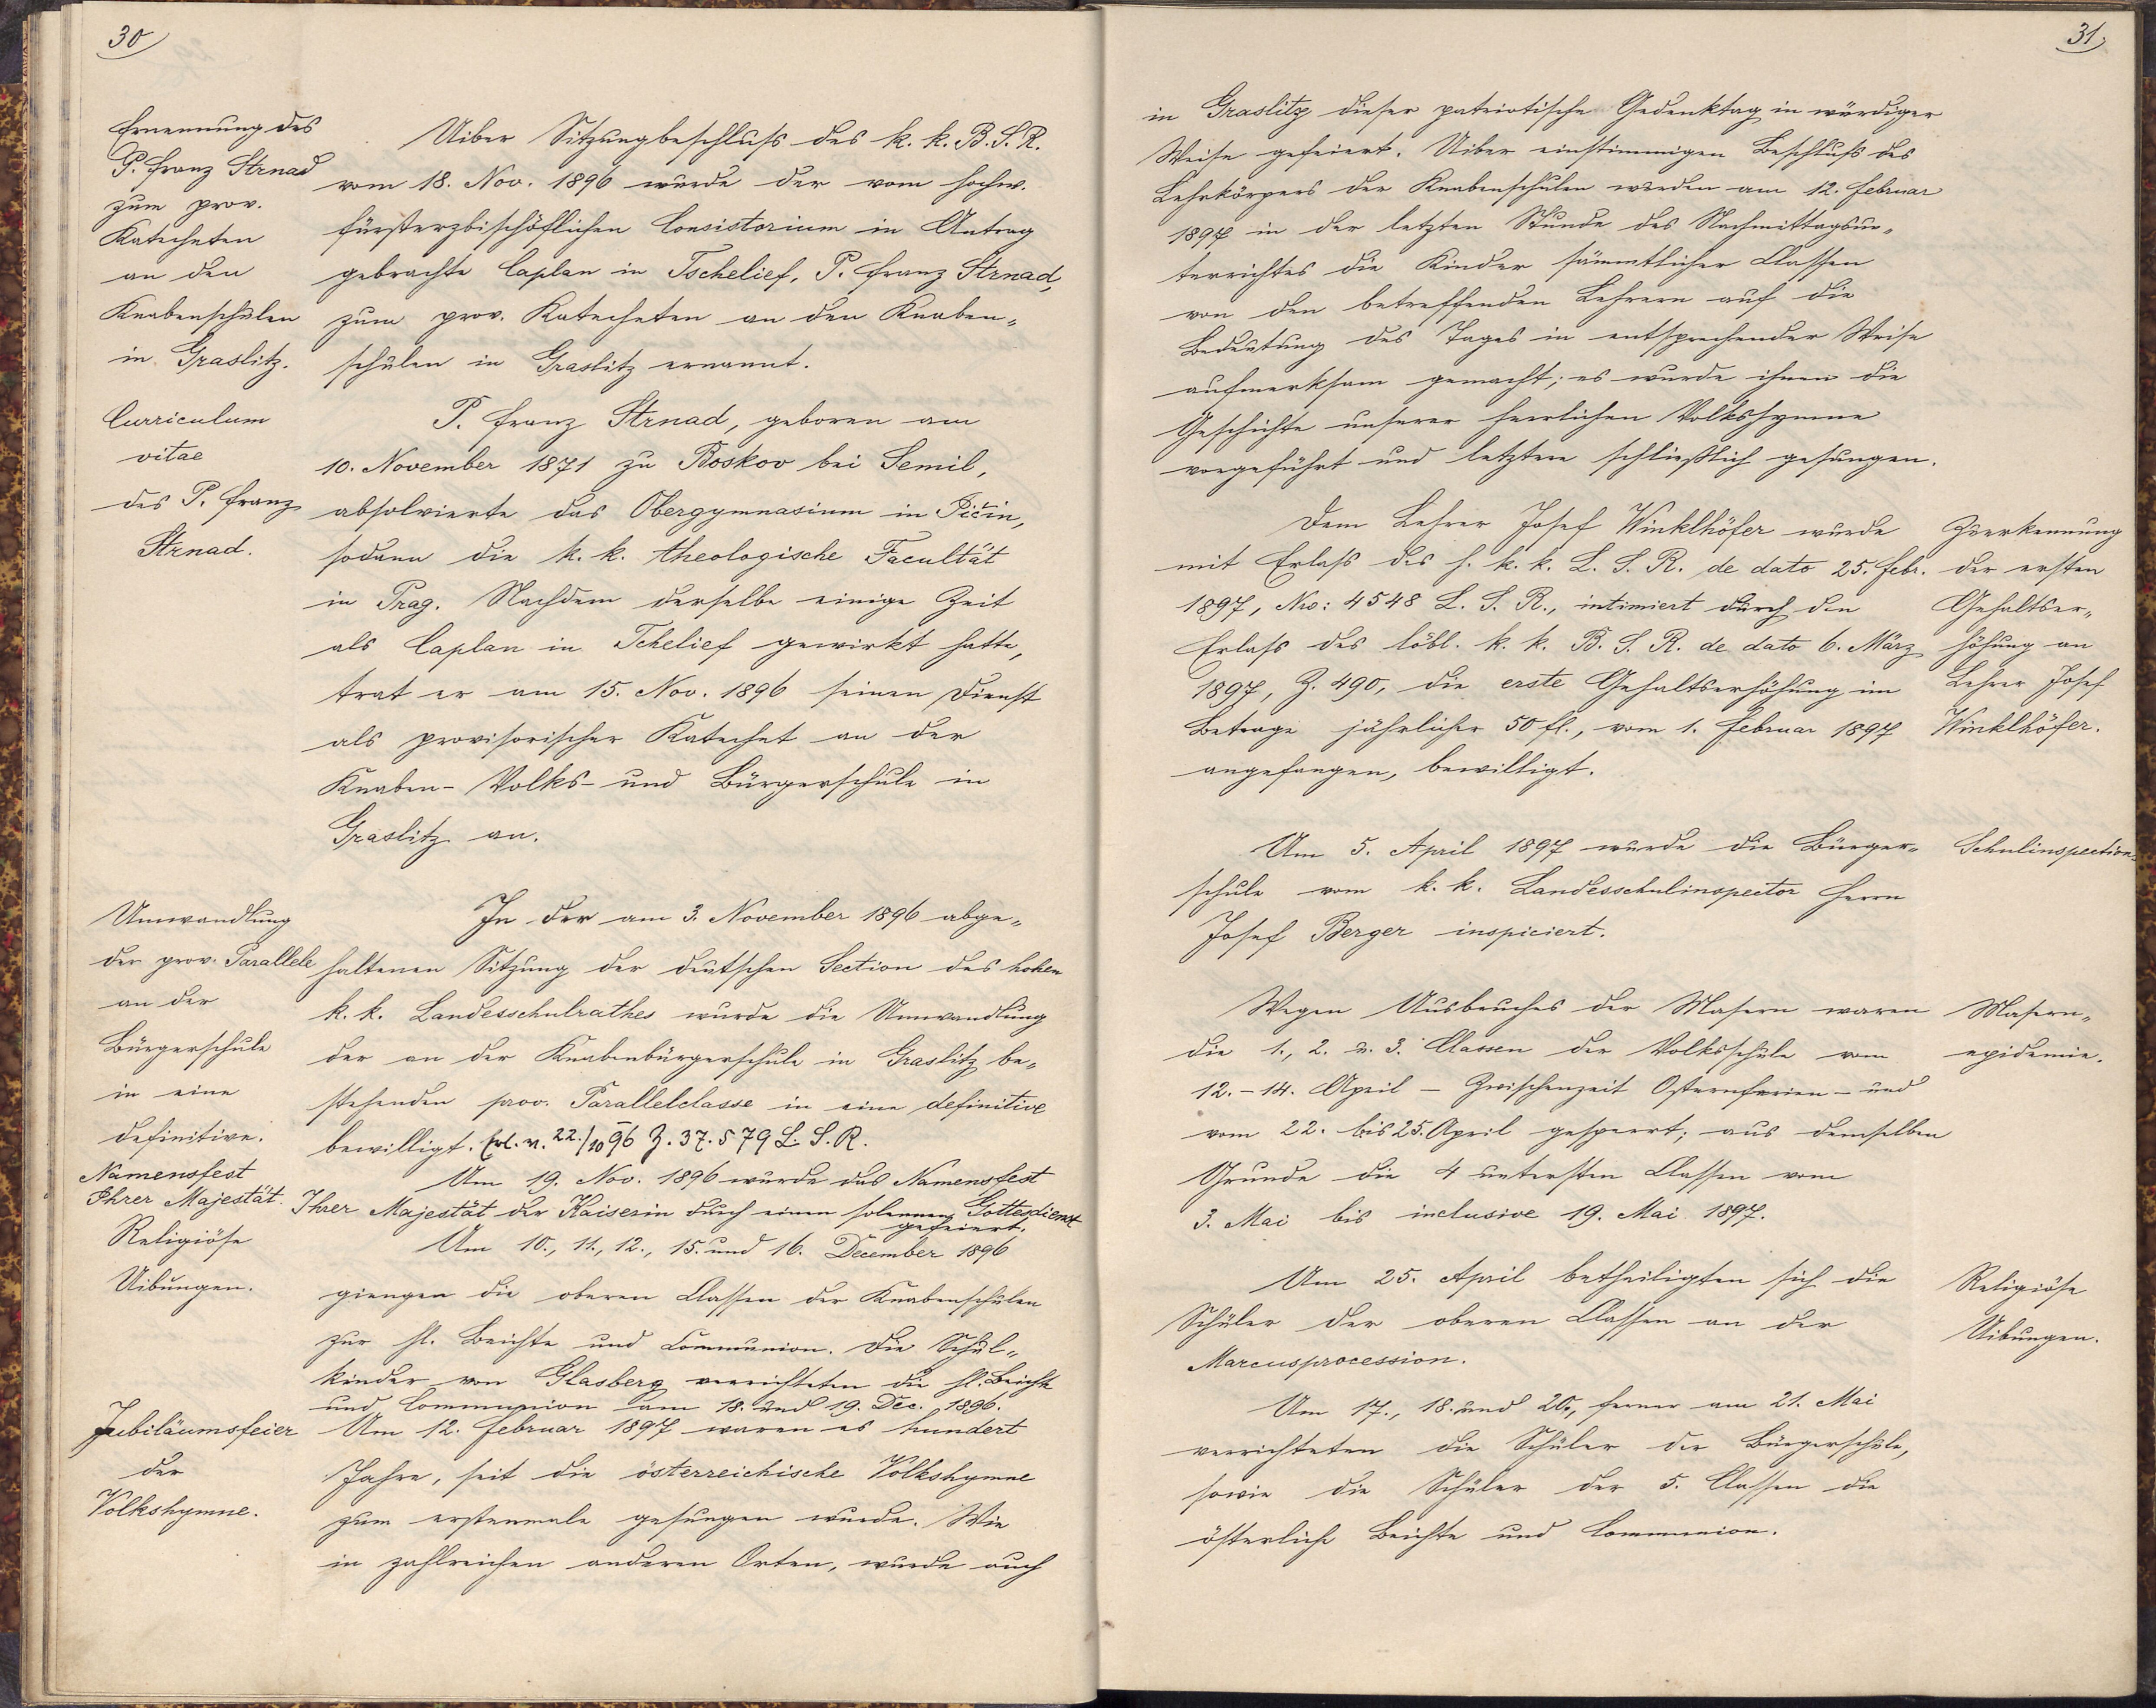 30
Ernennung des
P. Franz Strnad
zum prov.
Katecheten
an den
Knabenschulen
in Graslitz.
Uiber Sitzungbeschluss des k. k. B. S. R.
vom 18. Nov. 1896 wurde der vom hochw.
fürsterzbischöflichen Consistorium in Antrag
gebrachte Caplan in Tschelief, P. Franz Strnad,
zum prov. Katecheten an den Knaben-
schulen in Graslitz ernannt.
Curriculum
vitae
des P. Franz
Strnad.
P. Franz Strnad, geboren am
10. November 1871 zu Boskov bei Semil,
absolvierte das Obergymnasium in Pičin,
sodann die k. k. theologische Facultät
in Prag. Nachdem derselbe einige Zeit
als Caplan in Tchelief gewirkt hatte,
trat er am 15. Nov. 1896 seinen Dienst
als provisorischer Katechet an der
Knaben- Volks- und Bürgerschule in
Graslitz an.
Umwandlung
der prov. Parallele
an der
Bürgerschule
in eine
definitive.
In der am 3. November 1896 abge-
haltenen Sitzung der deutschen Section des hohen
k. k. Landesschulrathes wurde die Umwandlung
der an der Knabenbürgerschule in Graslitz be-
stehenden prov. Parallelclasse in eine definitive
bewilligt. Erl. v. 22./10 96 Z. 37.579 L. S. R.
Namensfest
Ihrer Majestät.
Am 19. Nov. 1896 wurde das Namensfest
Ihrer Majestät der Kaiserin durch einen solennen Gottesdienst
gefeiert.
Religiöse
Uibungen.
Am 10., 11., 12., 15. und 16. December 1896
giengen die oberen Classen der Knabenschulen
zur hl. Beichte und Communion. Die Schul-
kinder von Glasberg verrichteten die hl. Beichte
und Communion am 18. und 19. Dec. 1896.
Jubiläumsfeier
der
Volkshymne.
Am 12. Februar 1897 waren es hundert
Jahre, seit die österreichische Volkshymne
zum erstenmale gesungen wurde. Wie
in zahlreichen anderen Orten, wurde auch
31.
in Graslitz dieser patriotische Gedenktag in würdiger
Weise gefeiert. Uiber einstimmigen Beschluss des
Lehrkörpers der Knabenschulen wurden am 12. Februar
1897 in der letzten Stunde des Nachmittagsun-
terrichtes die Kinder sämmtlicher Classen
von den betreffenden Lehrern auf die
Bedeutung des Tages in entsprechender Weise
aufmerksam gemacht; es wurde ihnen die
Geschichte unserer herrlichen Volkshymne
vorgeführt und letztere schließlich gesungen.
Dem Lehrer Josef Winklhöfer wurde
mit Erlass des h. k. k. L. S. R. de dato 25. Febr.
1897, Nro: 4548 L. S. R., intimiert durch den
Erlass des löbl. k. k. B. S. R. de dato 6. März
1897, Z. 490, die erste Gehaltserhöhung im
Betrage jährlicher 50 fl., vom 1. Februar 1897
angefangen, bewilligt.
Zuerkennung
der ersten
Gehaltser-
höhung an
Lehrer Josef
Winklhöfer.
Am 5. April 1897 wurde die Bürger-
schule vom k. k. Landesschulinspector Herrn
Josef Berger inspiciert.
Schulinspection.
Wegen Ausbruches der Masern waren
die 1., 2. u. 3. Classen der Volksschule vom
12. - 14. April - Zwischenzeit Osternferien - und
vom 22. bis 25. April gesperrt; aus demselben
Grunde die 4 untersten Classen vom
3. Mai bis inclusive 19. Mai 1897.
Masern-
epidemie.
Am 25. April betheiligten sich die
Schüler der oberen Classen an der
Marcusprocession.
Religiöse
Uibungen.
Am 17., 18. und 20., ferner am 21. Mai
verrichteten die Schüler der Bürgerschule,
sowie die Schüler der 5. Classen die
österliche Beichte und Communion.